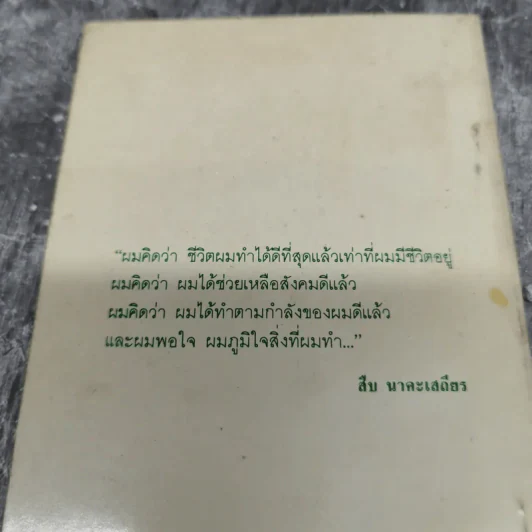 “ผมคิดว่า ชีวิตผมทำได้ดีที่สุดแล้วเท่าที่ผมมีชีวิตอยู่
ผมคิดว่า ผมได้ช่วยเหลือสังคมดีแล้ว
ผมคิดว่า ผมได้ทำตามกำลังของผมดีแล้ว
และผมพอใจ ผมภูมิใจสิ่งที่ผมทำ...”
สืบ นาคะเสถียร